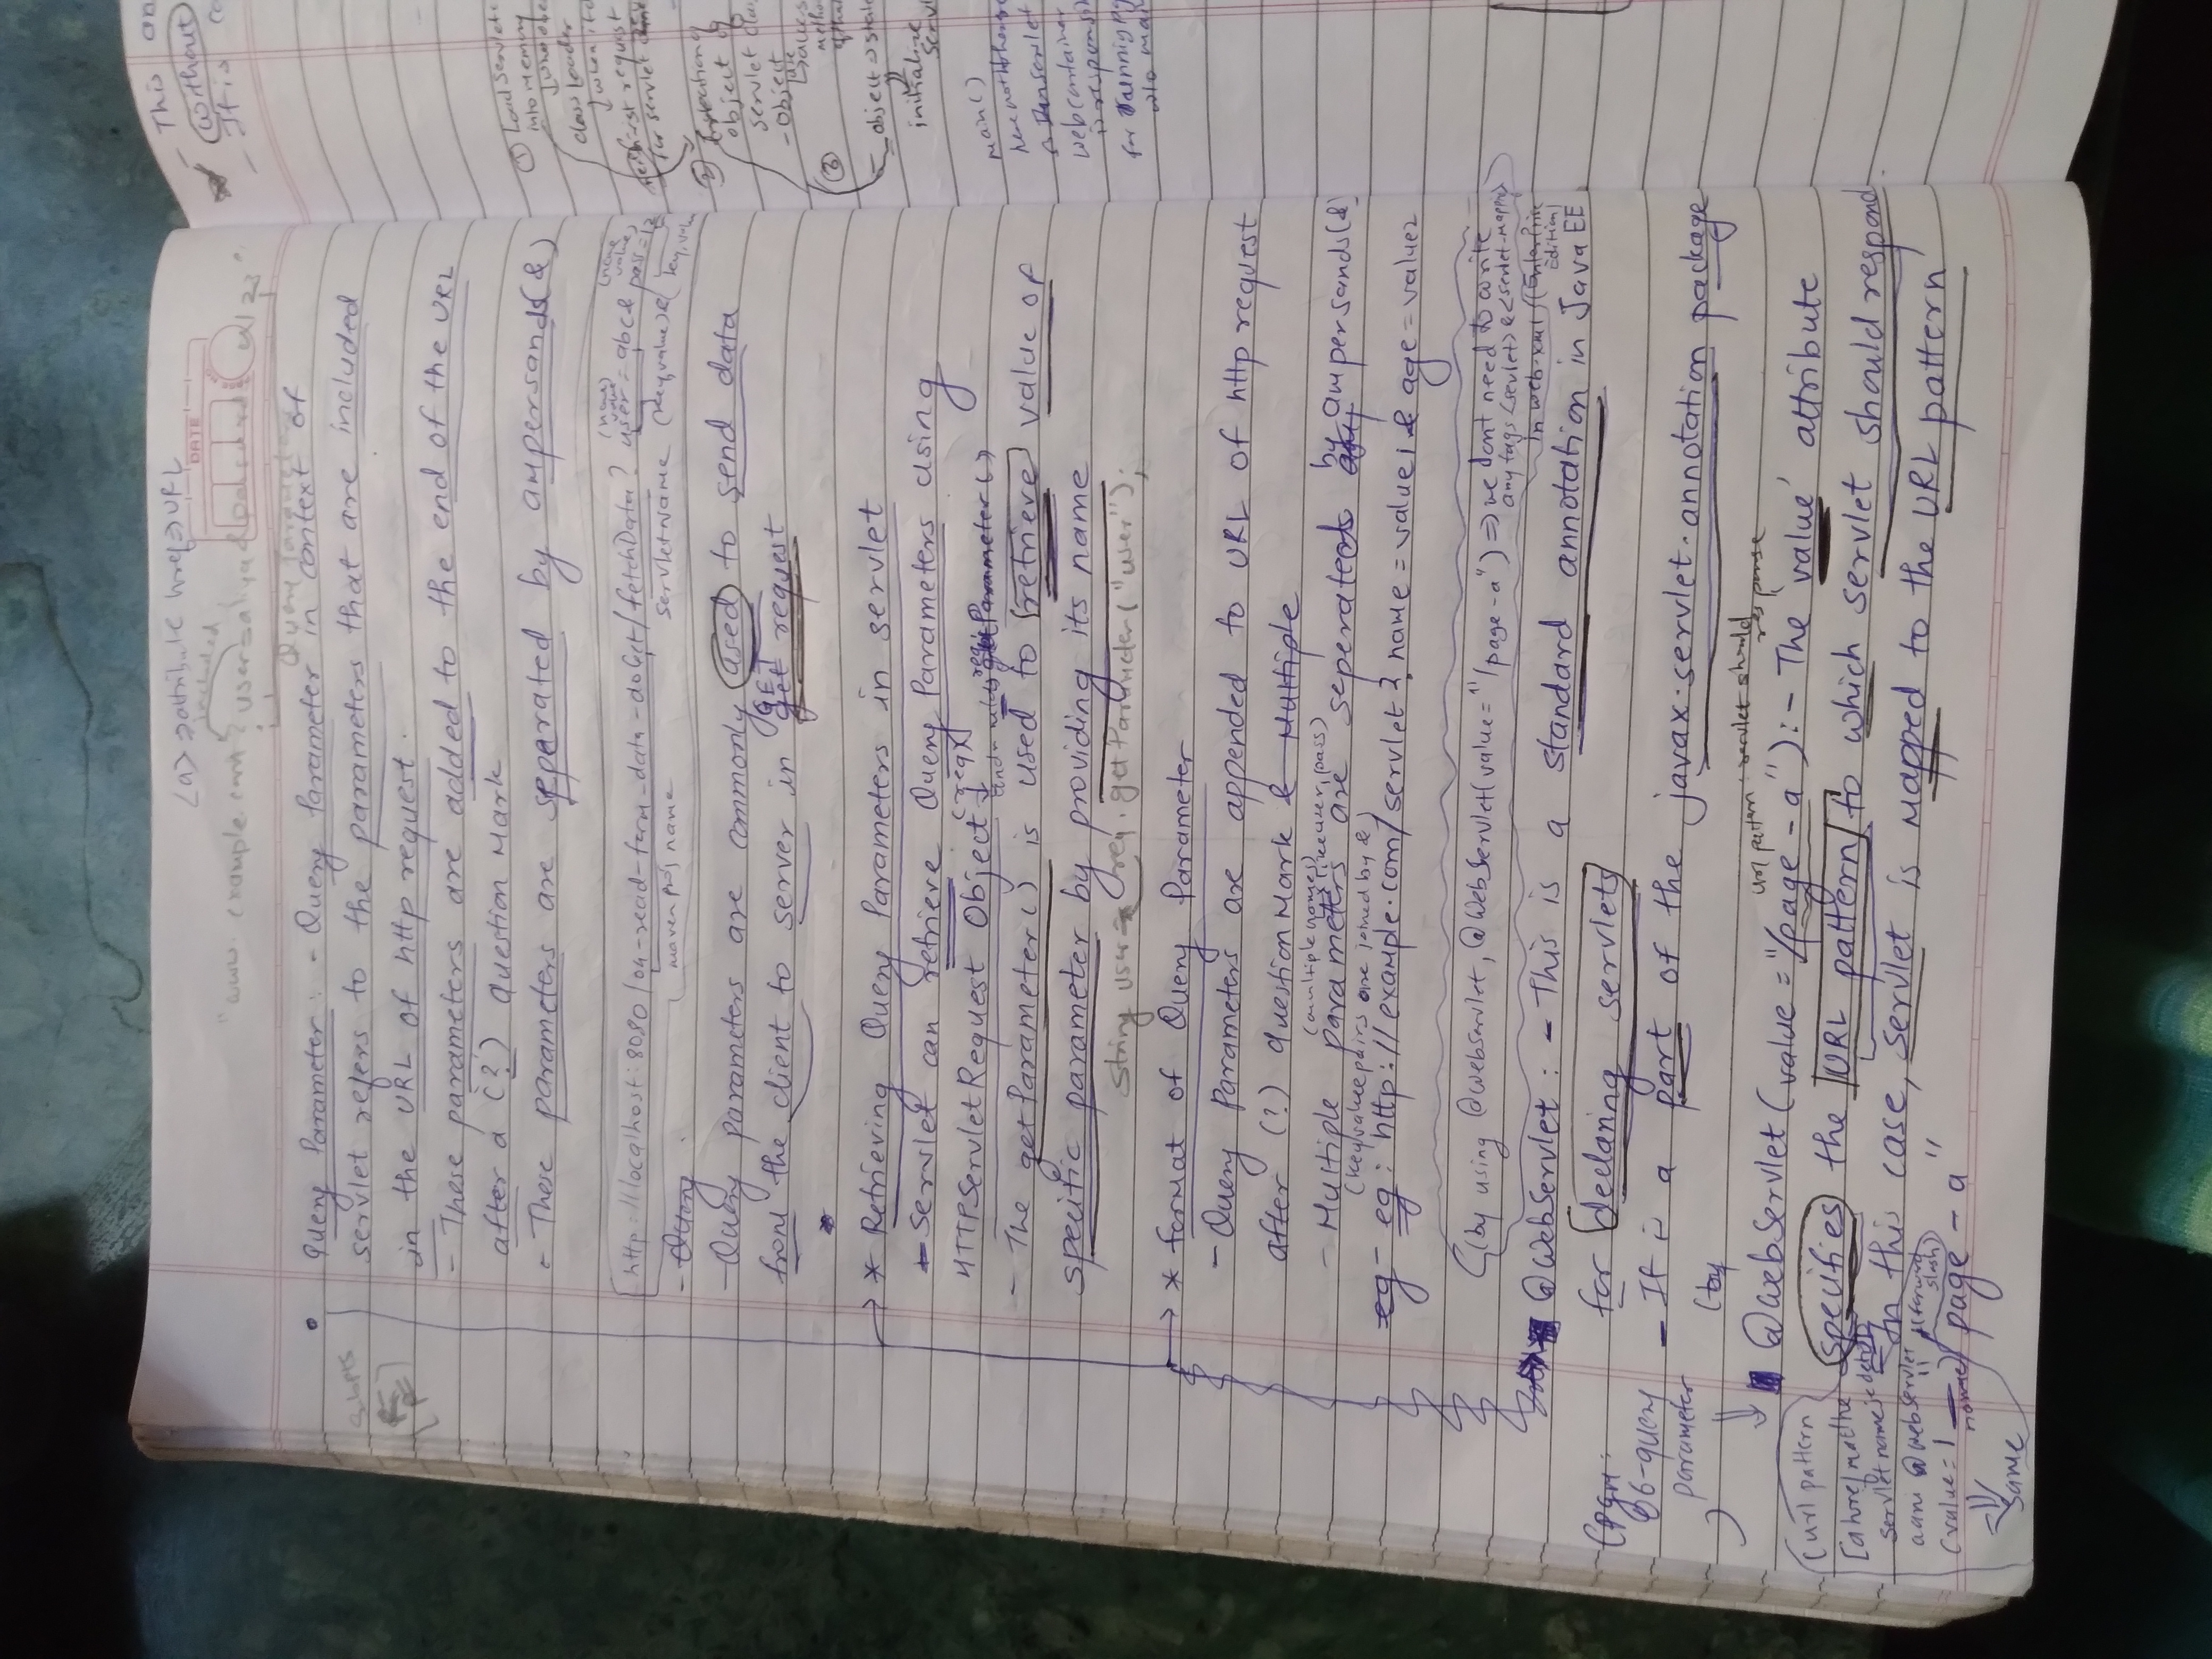 <a> ⇒ attribute href ⇒ URL
included
DATE
"www. example.com? user=aliya& password
Query Parameters
• Query Parameter : - Query Parameter in context of
servlet refers to the parameters that are included
in the URL of http request.
- These parameters are added to the end of the URL
after a (?) Question Mark
- These parameters are separated by ampersands(&)
(name value) (name value)
http://localhost:8080/04-read-form-data-doGet/fetchData? user=abc& pass=12
maven proj name servletName (key,value)& key,value
- Query
- Query parameters are commonly used to send data
GET
from the client to server in get request
→ * Retrieving Query Parameters in servlet
- Servlet can retrieve Query Parameters using
(req)
HTTPServletRequest Object
req. getParameter()
- The getParameter() is used to retrieve value of
specific parameter by providing its name
String user = req.getParameter("user");
→ * format of Query Parameter
- Query Parameters are appended to URL of http request
after (?) Question Mark & Multiple
(multiple names) user, pass)
- Multiple parameters are seperateds by ampersands(&)
(key value pairs are joined by &)
eg - eg: http://example.com/servlet? name=value1 & age=value2
(by using @webservlet, @WebServlet(value="/page-a") ⇒ we dont need to write
any tags <sevlet> & <servlet-mapping>
In web.xml (Enterprise
Edition)
@WebServlet : - This is a standard annotation in Java EE
for declaring servlets
(pgm:
06-query
parameter
)
- It is a part of the javax.servlet.annotation package
(by
url pattern servlet should
response
@webServlet (value = "/page-a") :- The 'value' attribute
specifies the URL pattern to which servlet should respond.
In this case, servlet is mapped to the URL pattern
(forward
slash)
"/page-a"
(url pattern
servlet name
aani @webservlet
(value=
name)
Same
This
without
If is
① Load Servlet
into memory
class Loader
when
first request
for servlet
②
object of
servlet
- Object
③
- object ⇒
initialize
main()
web container
is
for running
w/o